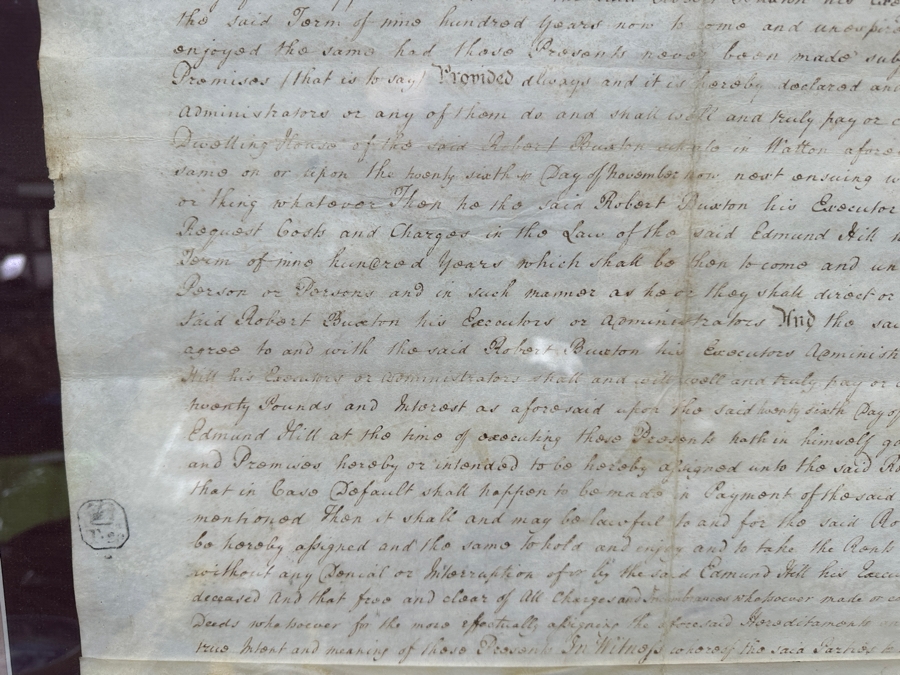 the said Term of nine hundred Years now to come and unexpired
enjoyed the same had these Presents never been made
Premises (that is to say) Provided always and it is hereby declared and
Administrators or any of them do and shall well and truly pay or
Dwelling House of the said Robert Buxton in Watton afore
same on or upon the twenty sixth Day of November now next ensuing
or thing whatever Then he the said Robert Buxton his Executor
Request Costs and Charges in the Law of the said Edmund Hill
Term of nine hundred Years which shall be then to come and un
Person or Persons and in such manner as he or they shall direct or
said Robert Buxton his Executors or Administrators And the sai
agree to and with the said Robert Buxton his Executors Administ
Hill his Executors or Administrators shall and will well and truly pay or
twenty Pounds and Interest as aforesaid upon the said twenty sixth Day of
Edmund Hill at the time of executing these Presents hath in himself
and Premises hereby or intended to be hereby assigned unto the said Ro
that in Case Default shall happen to be made in Payment of the said
mentioned Then it shall and may be lawful to and for the said Ro
be hereby assigned and the same to hold and enjoy and to take the Rents
without any Denial or Interruption of or by the said Edmund Hill his Execu
deceased And that free and clear of All Charges and Incumbrances whatsoever made or
Deeds whatsoever for the more effectually assigning the aforesaid Hereditaments
true Intent and meaning of these Presents In Witness whereof the said Parties